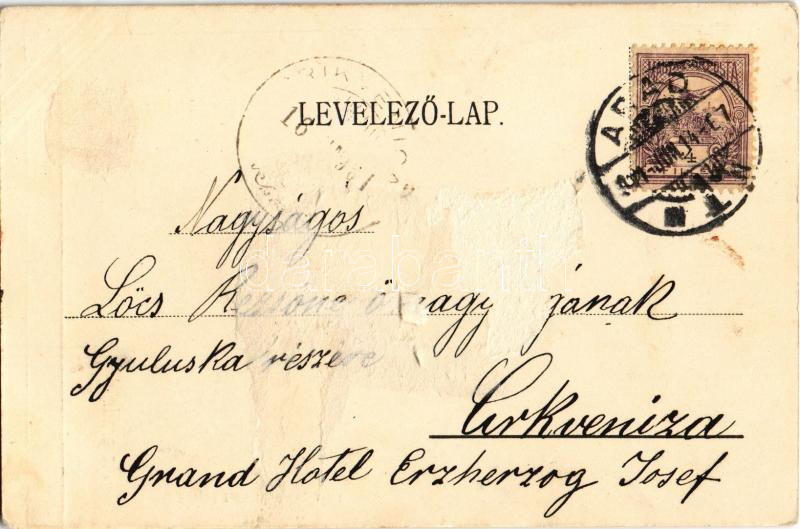 LEVELEZŐ-LAP.
ARAD
Nagyságos
Lőcs Rezsőné ő nagy gának
Gyuluska részére
Cirkveniza
Grand Hotel Erzherzog Josef
darabanth